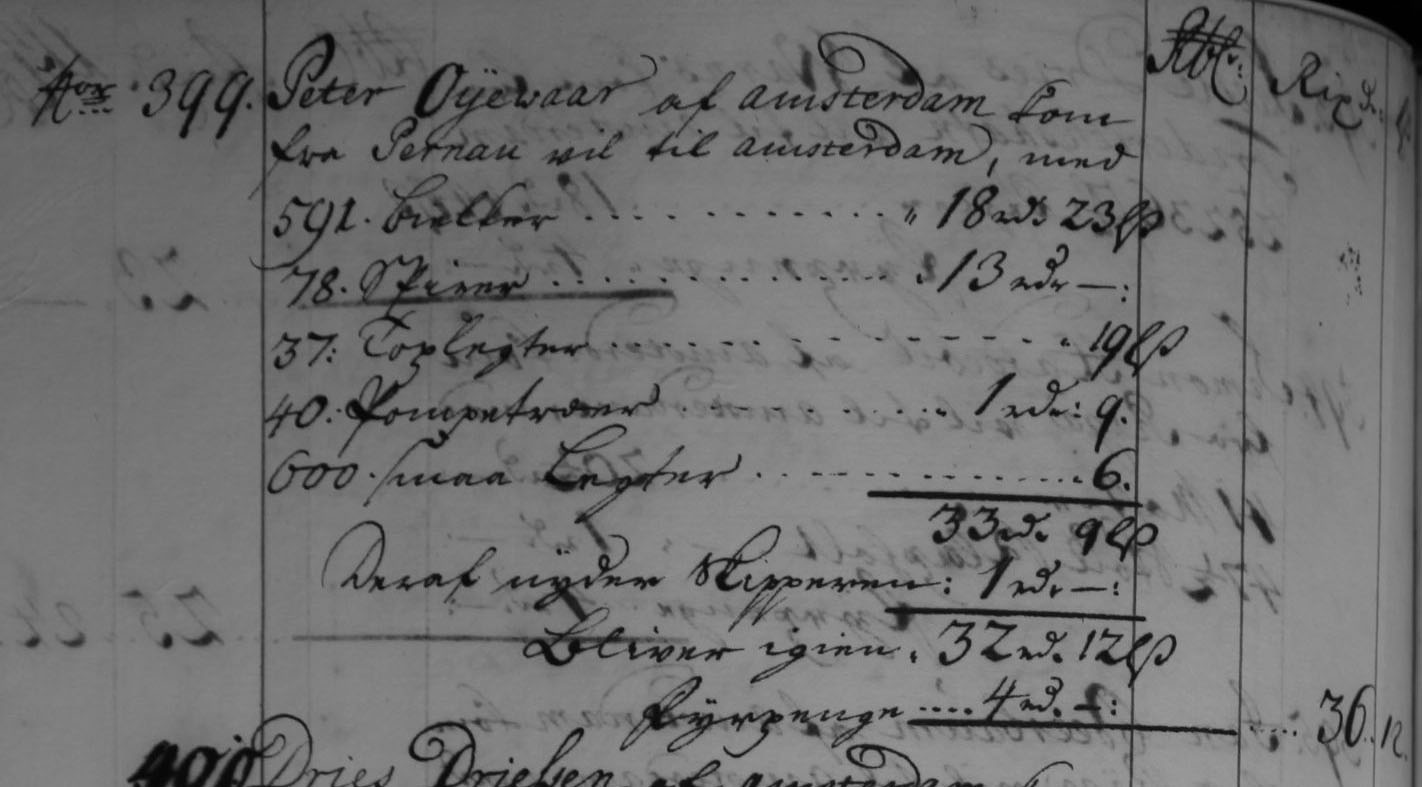 Rdlr: Rixdr.
Nor 399. Peter Oÿewaar af amsterdam kom
fra Pernau vil til amsterdam, med
591. bielker .............. " 18 rd. 23 ß
78. Spirer ............... . 13 rdr —:
37: Toplegter ............... " 19 ß
40. Pompetræer ........... " 1 rdr: 9.
600. smaa Legter ................ 6.
33 rd. 9 ß
Deraf nÿder Skipperen: 1 rd. —:
Bliver igien. 32 rd. 12 ß
Fÿrpenge .... 4 rd. —: .... 36. 12.
400 Dries Driesen af amsterdam